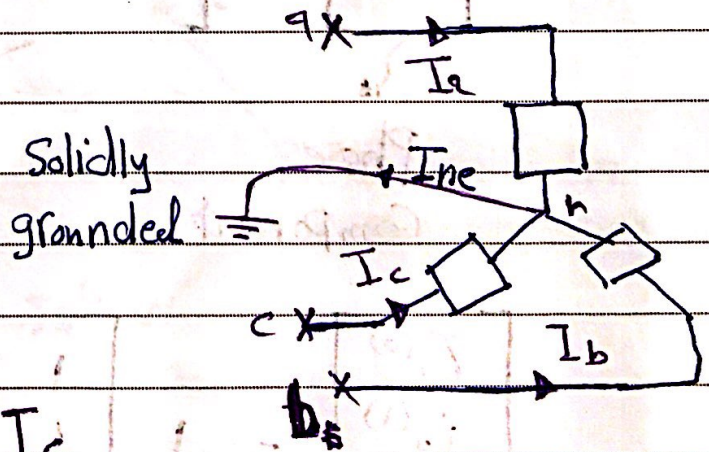 a
Ia
Solidly
grounded
Ine
n
Ic
c
Ib
b
I